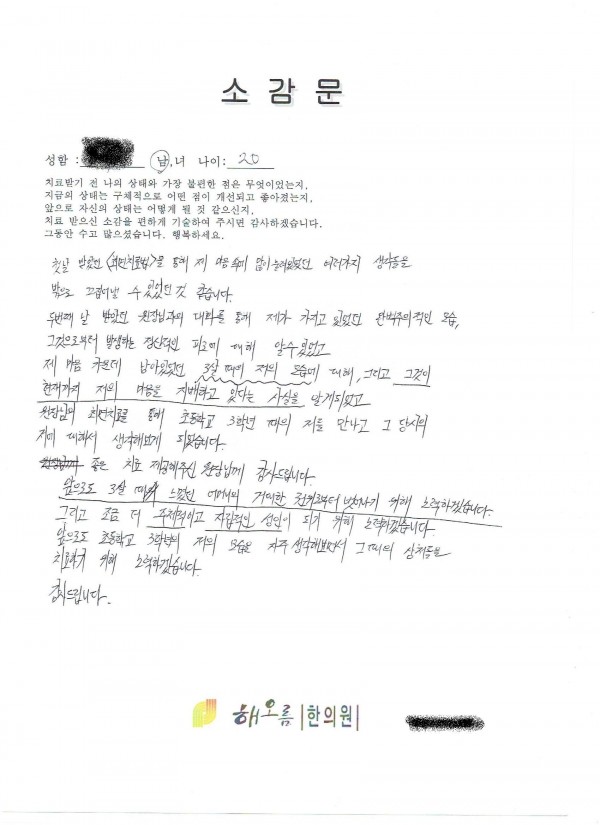 소 감 문
성함 : 남,녀 나이: 20
치료받기 전 나의 상태와 가장 불편한 점은 무엇이었는지,
지금의 상태는 구체적으로 어떤 점이 개선되고 좋아졌는지,
앞으로 자신의 상태는 어떻게 될 것 같으신지,
치료 받으신 소감을 편하게 기술하여 주시면 감사하겠습니다.
그동안 수고 많으셨습니다. 행복하세요.
첫날 받았던 <최면치료법>을 통해 제 마음 속에 많이 눌려왔었던 여러가지 생각들을
밖으로 끄집어낼 수 있었던 것 같습니다.
두번째 날 받았던 원장님과의 대화를 통해 제가 가지고 있었던 완벽주의적인 모습,
그것으로부터 발생하는 정신적인 피로에 대해 알 수 있었고
제 마음 가운데 남아있었던 3살 때의 저의 모습에 대해, 그리고 그것이
현재까지 저의 마음을 지배하고 있다는 사실을 알게되었고
원장님의 최면치료를 통해 초등학교 3학년 때의 저를 만나고 그 당시의
저에 대해서 생각해보게 되었습니다.
좋은 치료 제공해주신 원장님께 감사드립니다.
앞으로도 3살 때 느꼈던 어머니의 거대한 천위로부터 벗어나기 위해 노력하겠습니다.
그리고 조금 더 주체적이고 자립적인 성인이 되기 위해 노력하겠습니다.
앞으로 초등학교 3학년의 저의 모습을 자주 생각해보면서 그 때의 상처들을
치료하기 위해 노력하겠습니다.
감사드립니다.
해오름 |한의원|